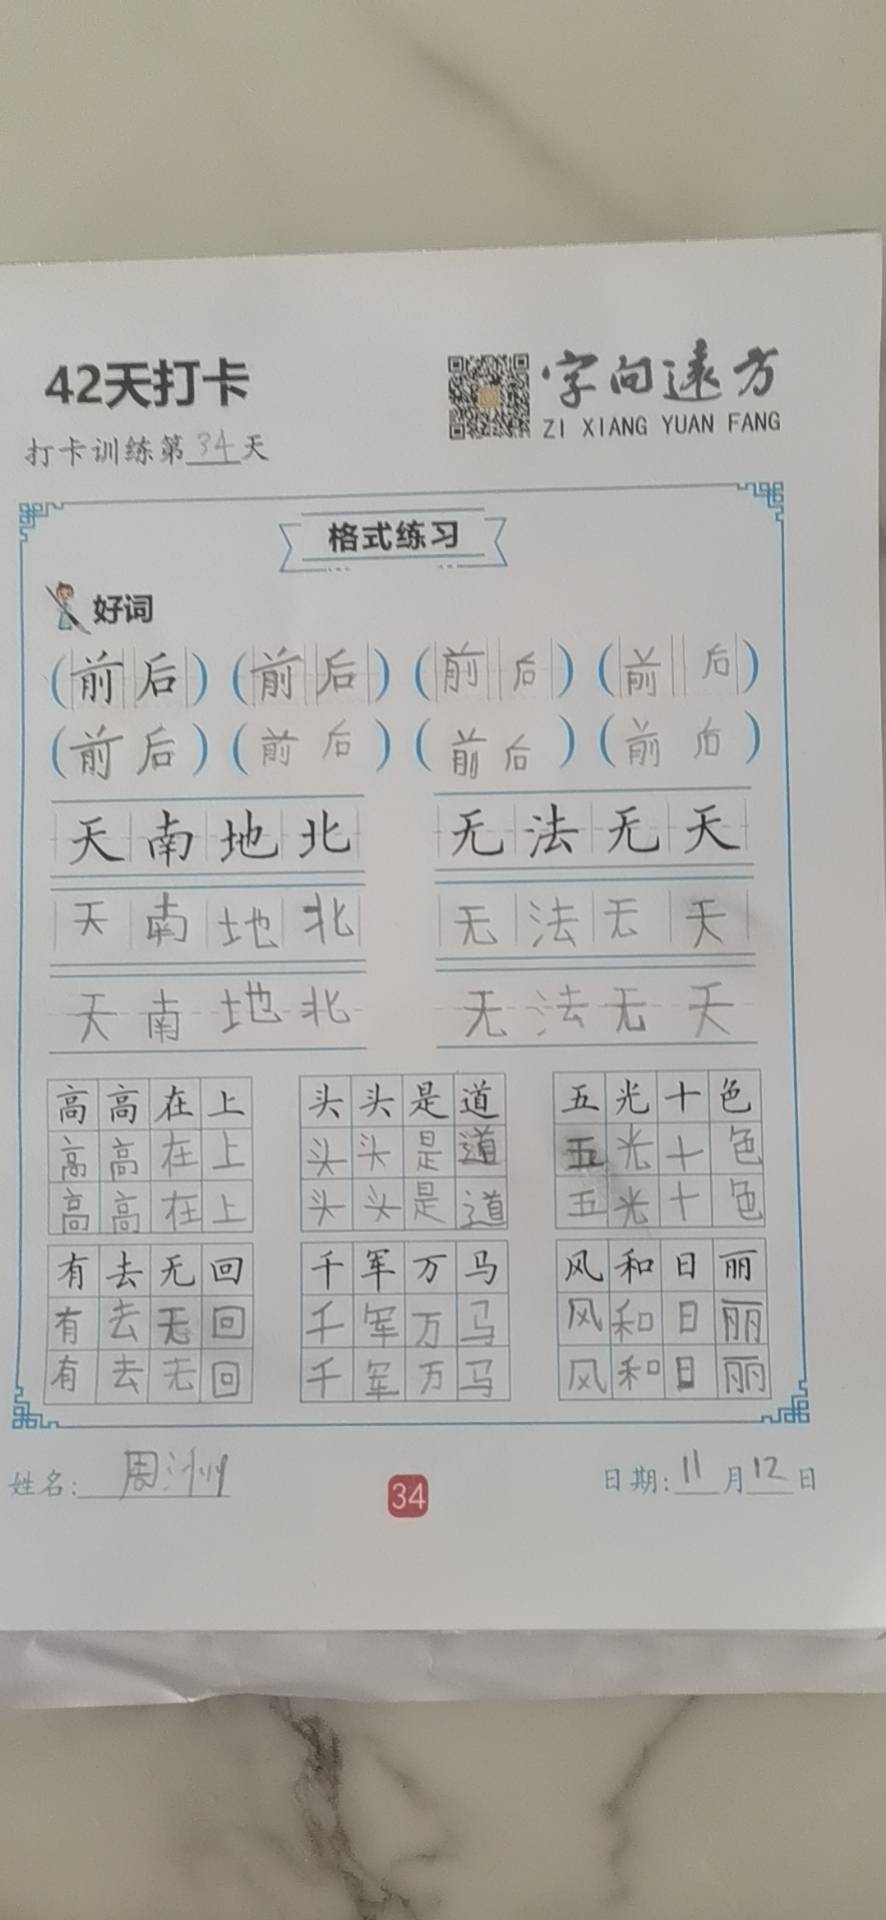 42天打卡
字向远方
ZI XIANG YUAN FANG
打卡训练第34天
格式练习
好词
(前后) (前后) (前后) (前后)
(前后) (前后) (前后) (前后)
天南地北 无法无天
天南地北 无法无天
天南地北 无法无天
高高在上 头头是道 五光十色
高高在上 头头是道 五光十色
高高在上 头头是道 五光十色
有去无回 千军万马 风和日丽
有去无回 千军万马 风和日丽
有去无回 千军万马 风和日丽
姓名:周洲 34 日期:11月12日